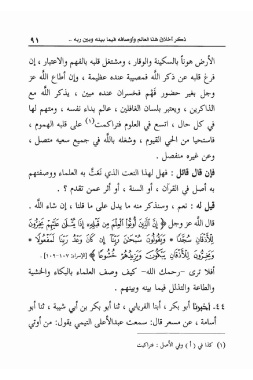 ذكر أخلاق هذا العالم وأوصافه فيما بينه وبين ربه .. ٩١
الأرض هوناً بالسكينة والوقار ، ومشتغل قلبه بالفهم والاعتبار ، إن
فرغ قلبه عن ذكر الله فمصيبة عنده عظيمة ، وإن أطاع الله عز
وجل بغير حضور فهم فخسران عنده مبين ، يذكر الله مع
الذاكرين ، ويعتبر بلسان الغافلين ، عالم بداء نفسه ، ومتهم لها
في كل حال ، اتسع في العلوم فتراكمت(١) على قلبه الهموم ،
فاستحيا من الحي القيوم ، وشغله بالله في جميع سعيه متصل ،
وعن غيره منفصل .
فإن قال قائل : فهل لهذا النعت الذي نعتَّ به العلماء ووصفتهم
به أصل في القرآن ، أو السنة ، أو أثر عمن تقدم ؟ .
قيل له : نعم ، وسنذكر منه ما يدل على ما قلنا ، إن شاء الله .
قال الله عز وجل ﴿ إِنَّ الَّذِينَ أُوتُوا الْعِلْمَ مِن قَبْلِهِ إِذَا يُتْلَى عَلَيْهِمْ يَخِرُّونَ
لِلْأَذْقَانِ سُجَّدًا * وَيَقُولُونَ سُبْحَانَ رَبِّنَا إِن كَانَ وَعْدُ رَبِّنَا لَمَفْعُولًا *
وَيَخِرُّونَ لِلْأَذْقَانِ يَبْكُونَ وَيَزِيدُهُمْ خُشُوعًا ﴾ [الإسراء: ١٠٧-١٠٩] .
أفلا ترى -رحمك الله- كيف وصف العلماء بالبكاء والخشية
والطاعة والتذلل فيما بينه وبينهم .
٤٤- [أخبرنا] أبو بكر ، أبنا الفريابي ، ثنا أبو بكر بن أبي شيبة ، ثنا أبو
أسامة ، عن مسعر قال: سمعت عبدالأعلى التيمي يقول: من أوتي
(١) كذا في (أ) وفي الأصل : فتراكبت